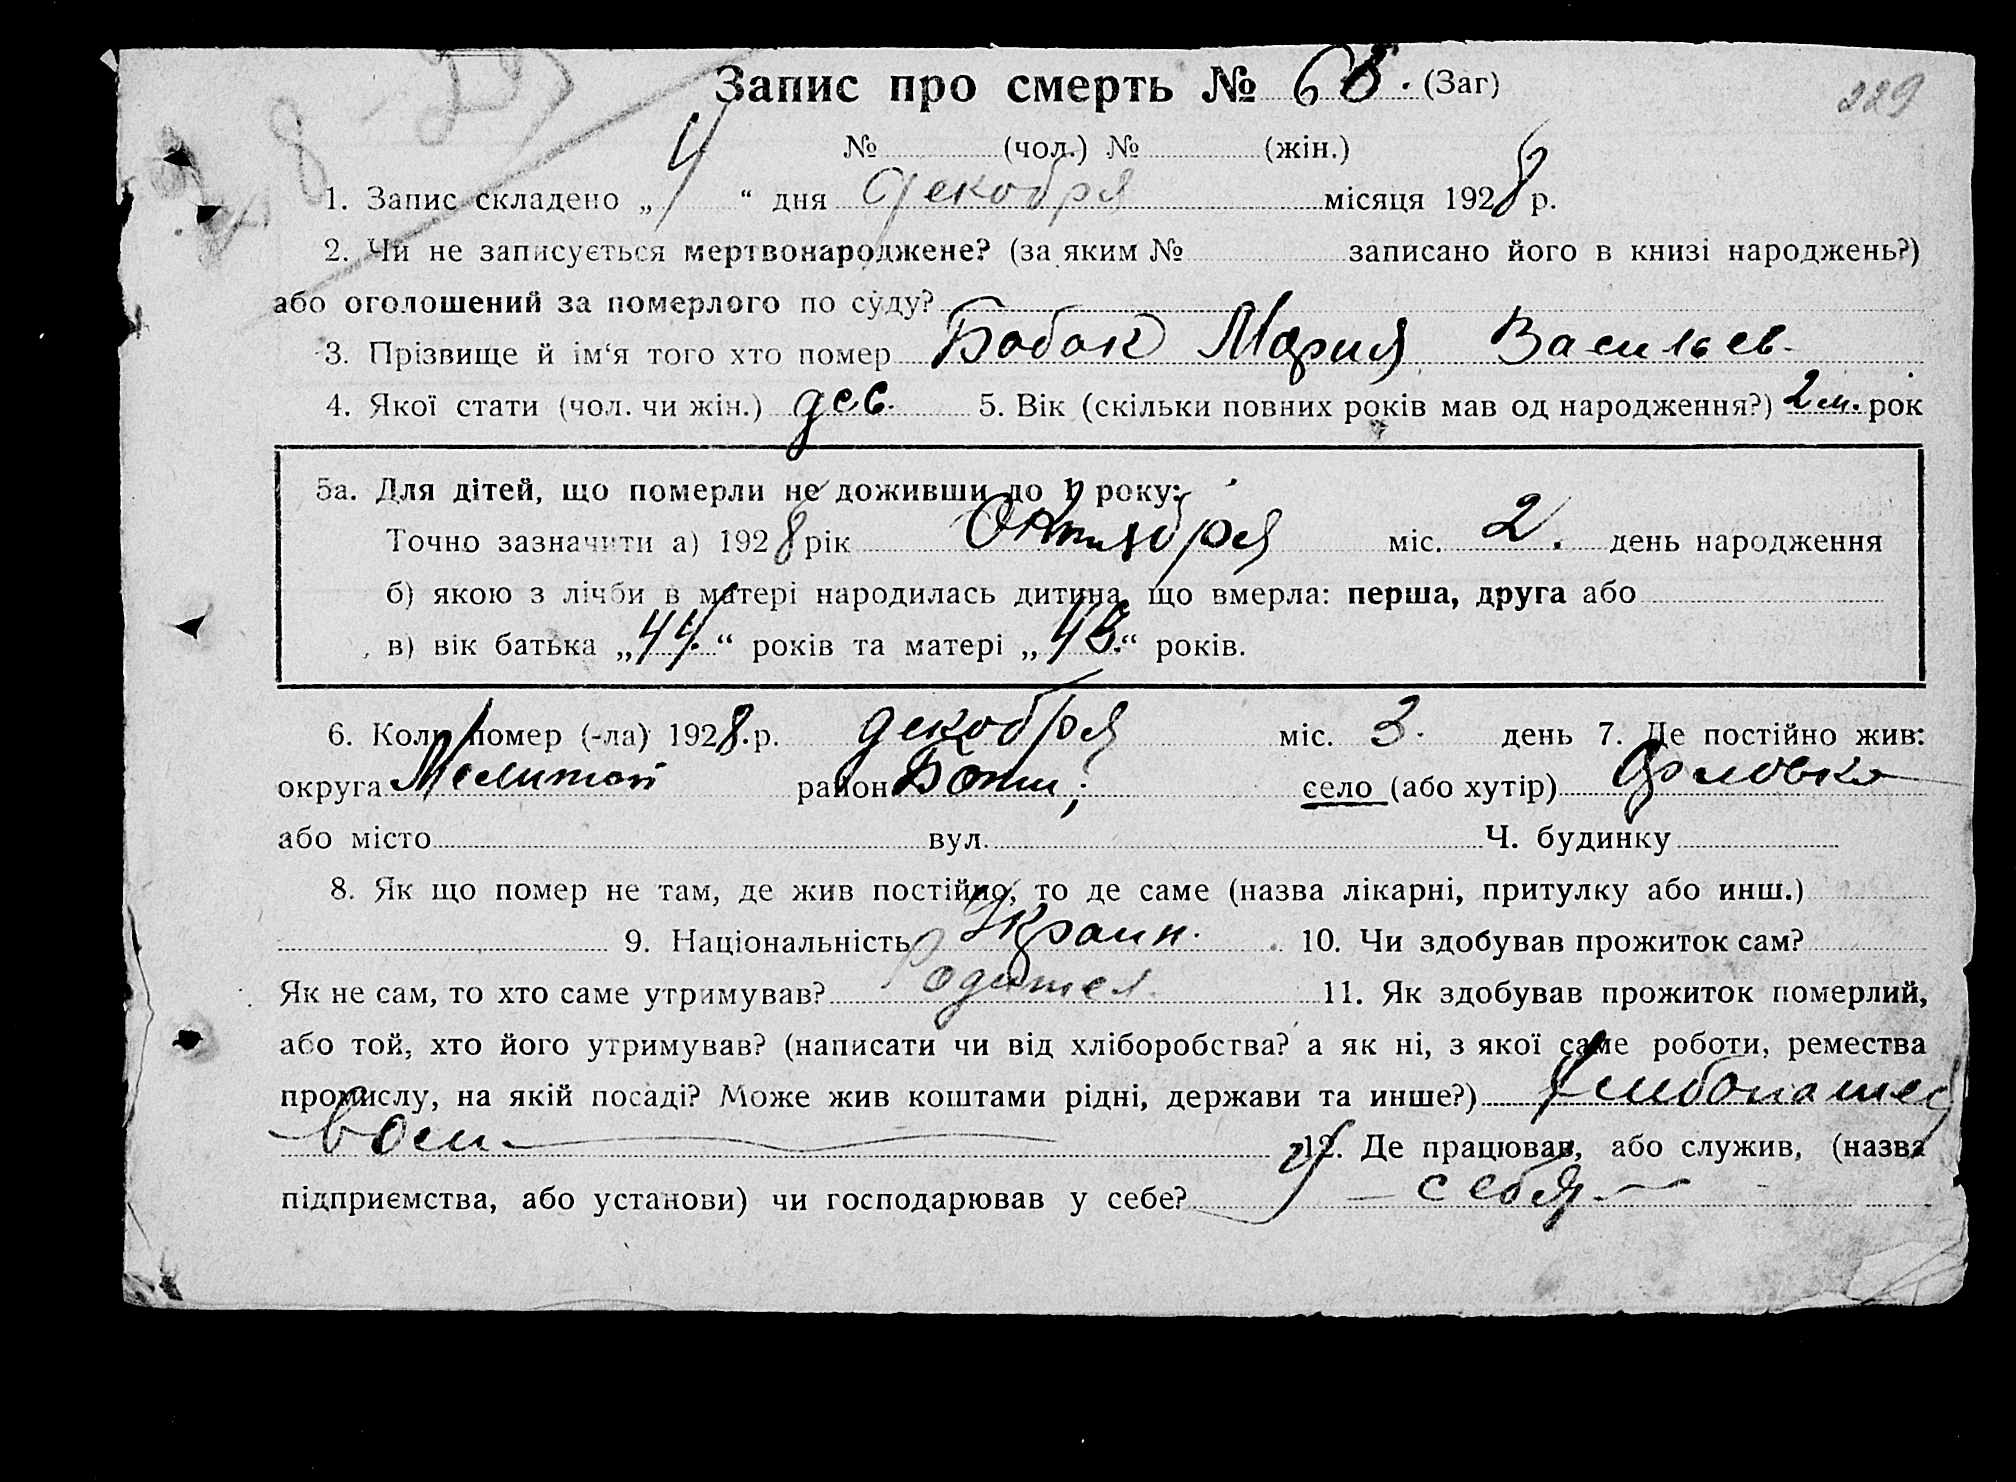 229
Запис про смерть № 68. (Заг)
№ (чол.) № (жін.)
1. Запис складено „4“ дня декабря місяця 1928 р.
2. Чи не записується мертвонароджене? (за яким № записано його в книзі народжень?)
або оголошений за померлого по суду?
3. Прізвище й ім‘я того хто помер Бабак Мария Васильев.
4. Якої стати (чол. чи жін.) дев. 5. Вік (скільки повних років мав од народження?) 2 м. рок
5а. Для дітей, що померли не доживши до 1 року:
Точно зазначити а) 1928 рік Октября міс. 2. день народження
б) якою з лічби в матері народилась дитина, що вмерла: перша, друга або
в) вік батька „44.“ років та матері „43.“ років.
6. Коли помер (-ла) 1928. р. декабря міс. 3. день 7. Де постійно жив:
округа Мелитоп район село (або хутір) Орловка
або місто вул. Ч. будинку
8. Як що помер не там, де жив постійно, то де саме (назва лікарні, притулку або инш.)
9. Національність Украин. 10. Чи здобував прожиток сам?
Як не сам, то хто саме утримував? Родител 11. Як здобував прожиток померлий,
або той, хто його утримував? (написати чи від хліборобства? а як ні, з якої саме роботи, ремества
промислу, на якій посаді? Може жив коштами рідні, держави та инше?) Хлибопашес
вом 12. Де працював, або служив, (назва
підприємства, або установи) чи господарював у себе? у себя